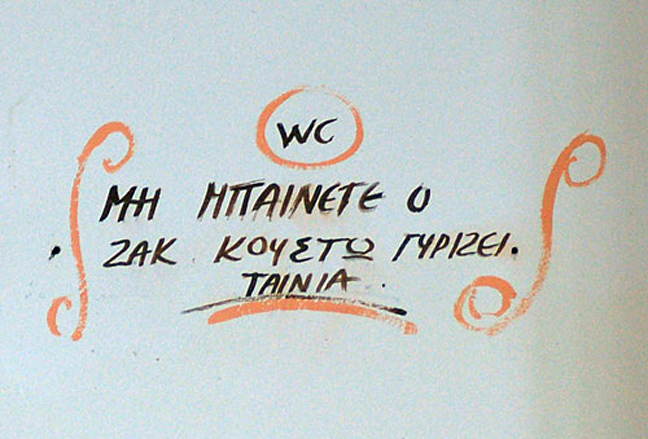 WC
ΜΗ ΜΠΑΙΝΕΤΕ Ο
ΖΑΚ ΚΟΥΣΤΩ ΓΥΡΙΖΕΙ.
ΤΑΙΝΙΑ.